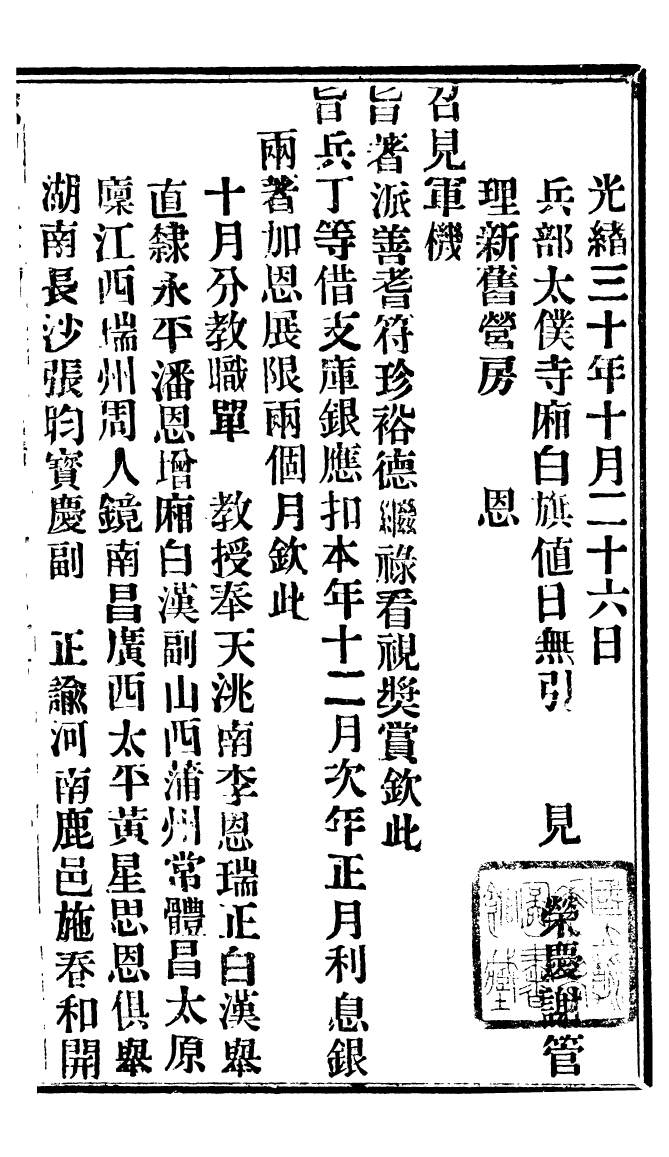 光緒三十年十月二十六日
兵部太僕寺廂白旗値日無引　見　榮慶謝管
理新舊營房　恩
召見軍機
旨著派善耆符珍裕德繼祿看視獎賞欽此
旨兵丁等借支庫銀應扣本年十二月次年正月利息銀
兩著加恩展限兩個月欽此
十月分教職單　教授奉天洮南李恩瑞正白漢舉
直隸永平潘恩增廂白漢副山西蒲州常體昌太原
廩江西瑞州周人鏡南昌廣西太平黃星思恩俱舉
湖南長沙張昀寶慶副　正諭河南鹿邑施春和開